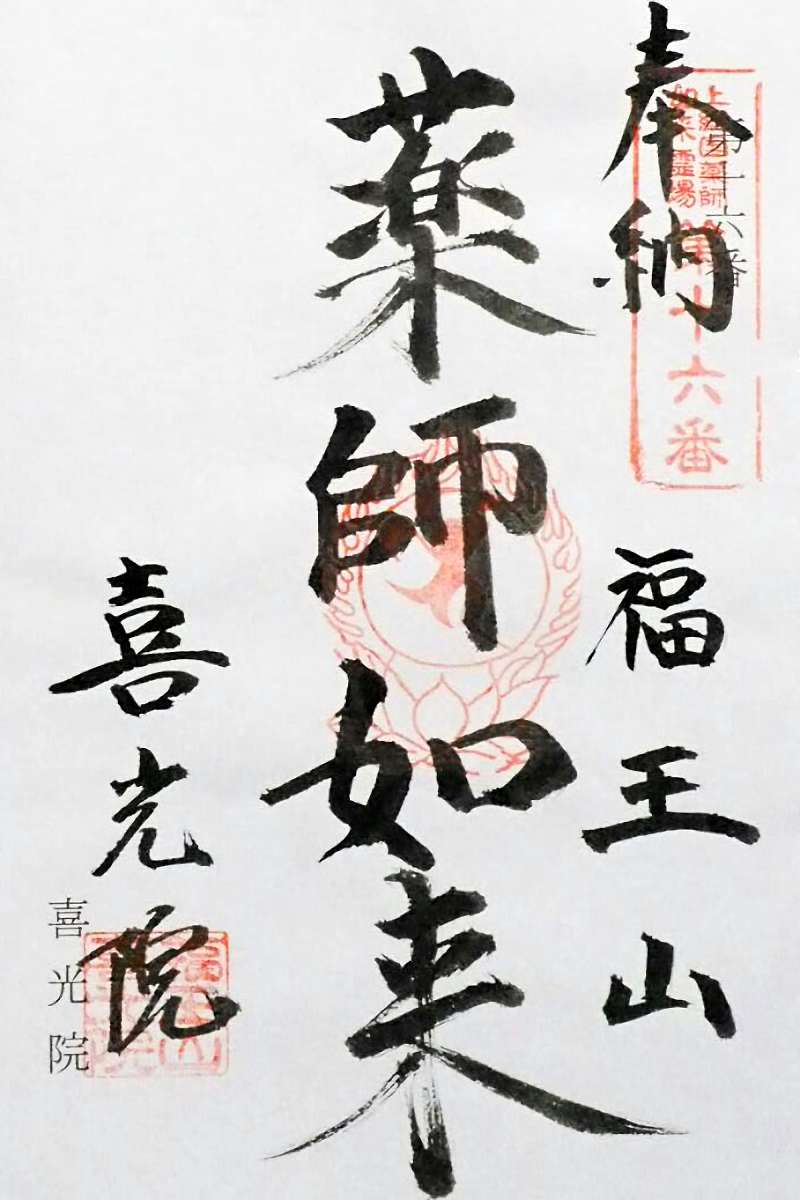 奉納
第十六番
上総国薬師
如来霊場
第十六番
福王山
薬師如来
喜光院
喜光院